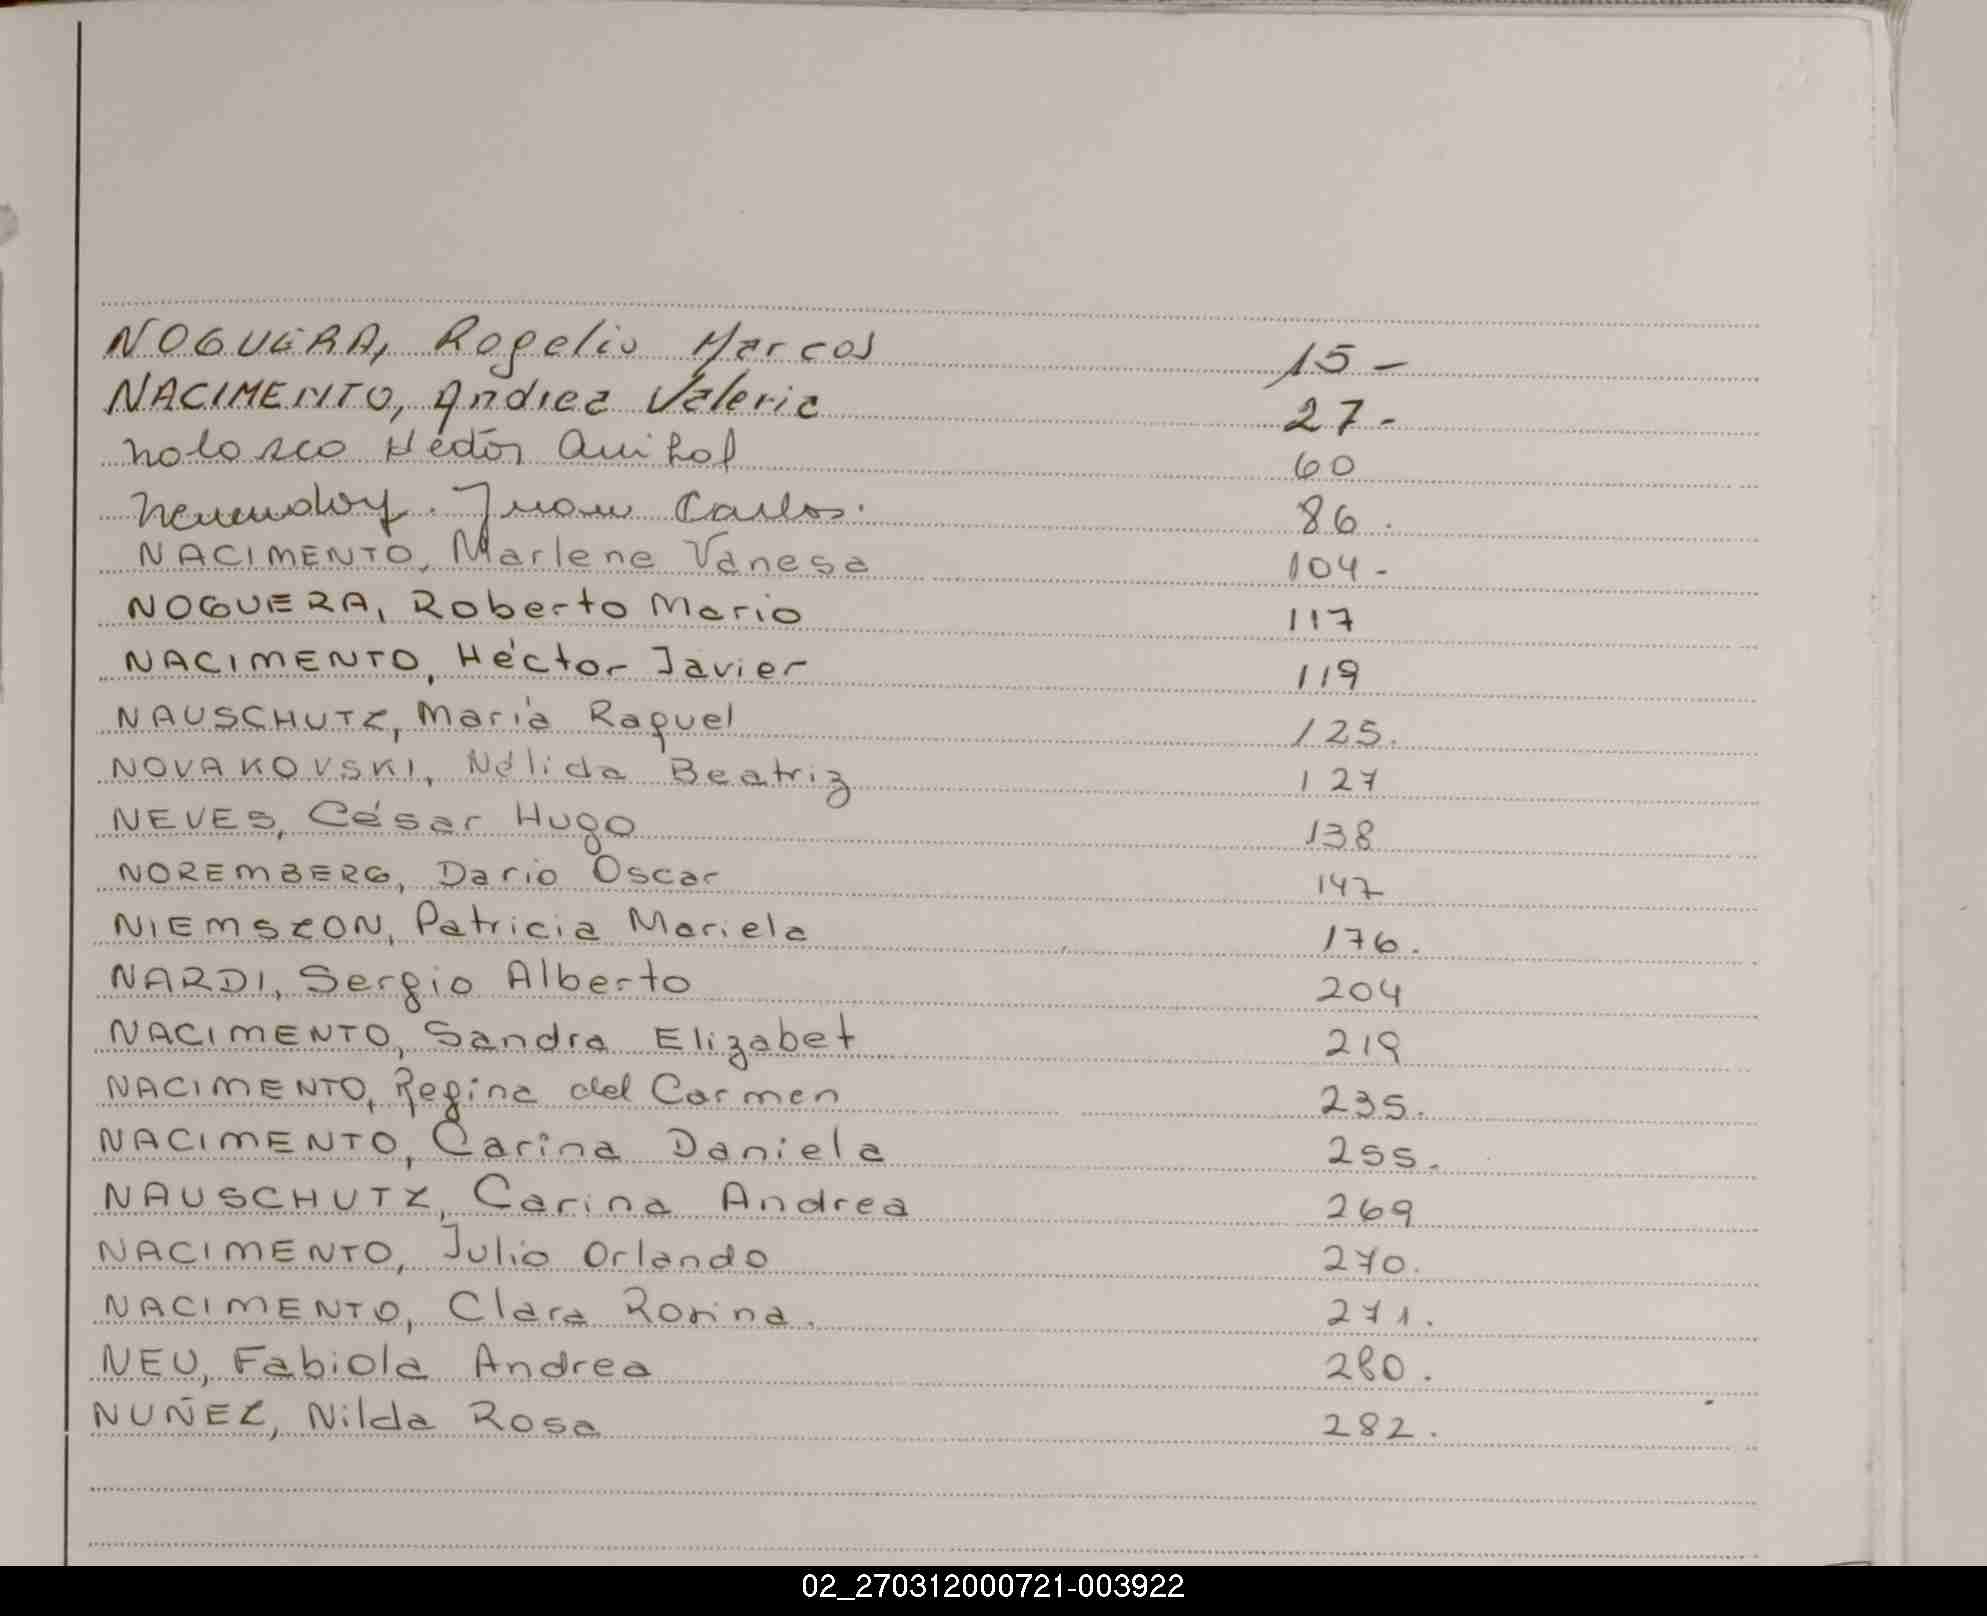 NOGUERA, Rogelio Marcos 15-
NACIMENTO, Andrea Valeria 27-
Nolasco Héctor Anibal 60
Juan Carlos. 86.
NACIMENTO, Marlene Vanesa 104-
NOGUERA, Roberto Mario 117
NACIMENTO, Héctor Javier 119
NAUSCHUTZ, María Raquel 125.
NOVAKOVSKI, Nélida Beatriz 127
NEVES, César Hugo 138
NOREMBERG, Dario Oscar 147
NIEMSZON, Patricia Mariela 176.
NARDI, Sergio Alberto 204
NACIMENTO, Sandra Elizabet 219
NACIMENTO, Regina del Carmen 235.
NACIMENTO, Carina Daniela 255.
NAUSCHUTZ, Carina Andrea 269
NACIMENTO, Julio Orlando 270.
NACIMENTO, Clara Rosina. 271.
NEU, Fabiola Andrea 280.
NUÑEZ, Nilda Rosa 282.
02_270312000721-003922